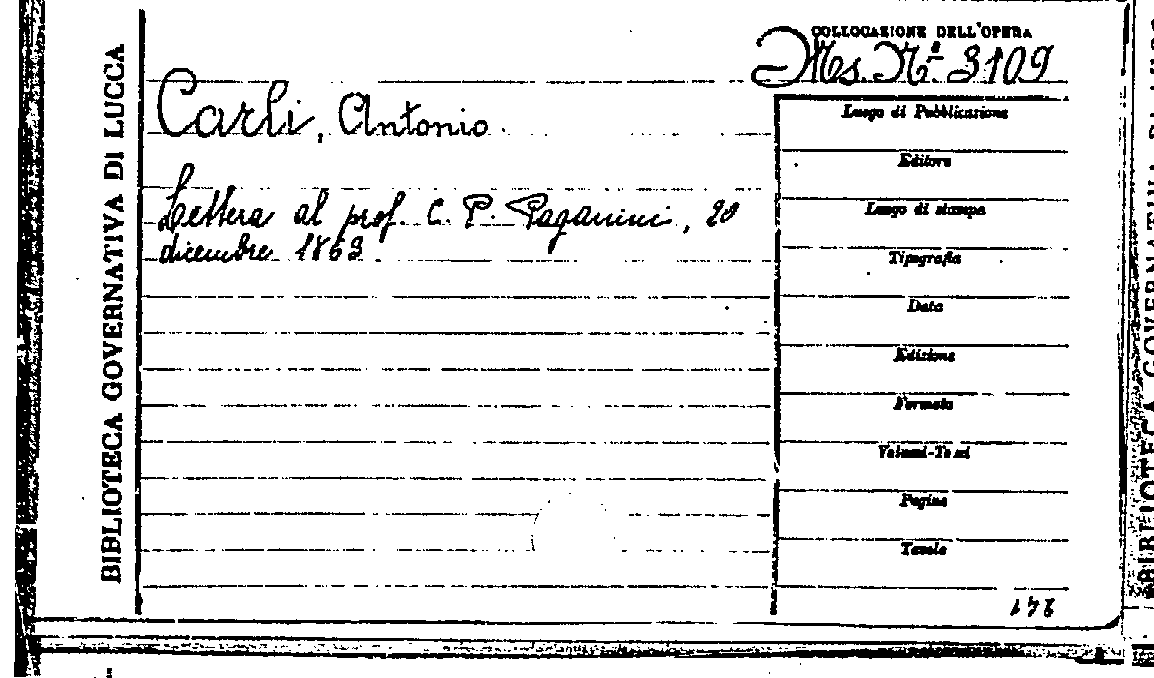 BIBLIOTECA GOVERNATIVA DI LUCCA
COLLOCAZIONE DELL'OPERA
Ms. Nº. 3109
Carli, Antonio.
Lettera al prof. C. P. Paganini, 20
dicembre 1863.
Luogo di Pubblicazione
Editore
Luogo di stampa
Tipografia
Data
Edizione
Formato
Volumi-Tomi
Pagine
Tavole